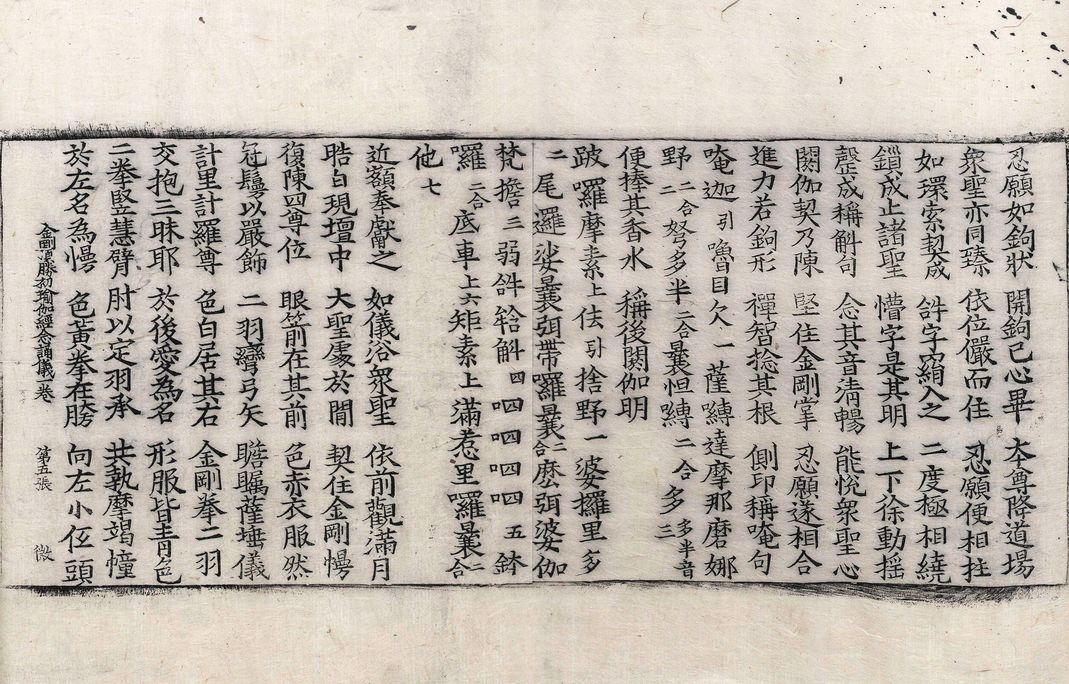 忍願如鉤狀 開鉤已心畢 本尊降道場
衆聖亦同臻 依位儼而住 忍願便相拄
如環索契成 𤙖字窈綃入之 二度極相繞
鎖成止諸聖 懵字是其明 上下徐動揺
磬成稱斛句 念其音清暢 能悅衆聖心
閼伽契乃陳 堅住金剛掌 忍願遂相合
進力若鉤形 禪智捻其根 側印稱唵句
唵迦引嚕目欠一薩縛達摩那磨娜
野二合弩多半二合曩怛縛二合多多半音三
便捧其香水 稱後閼伽明
跛囉摩素上佉引捨野一婆攞里多
二尾邏娑曩弭帶囉曩二合麽弭婆伽
梵擔三弱𤙖𤚥斛四呬呬呬呬五鉢
囉二合底車上六矩素上滿惹里囉曩二合
他七
近額奉獻之 如儀浴衆聖 依前觀滿月
晧白現壇中 大聖處於閒 契住金剛慢
復陳四尊位 眼箭前在其前 色赤衣服然
冠鬘以嚴飾 二羽彎弓矢 瞻矚薩埵儀
計里計羅尊 色白居其右 金剛拳二羽
交抱三昧耶 於後愛為名 形服皆青色
二拳竪慧臂 肘以定羽承 共執摩竭幢
於左名為慢 色黃拳在胯 向左小伍頭
金剛頂勝初瑜伽經念誦儀一卷 第五張 微